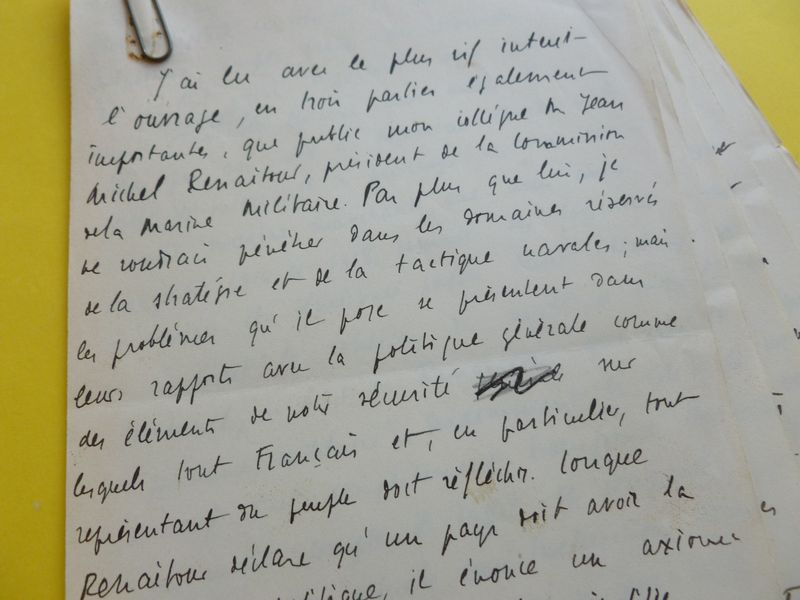 J'ai lu avec le plus vif intérêt
l'ouvrage, en trois parties également
importantes, que publie mon collègue M Jean
Michel Renaitour, président de la Commission
de la Marine Militaire. Pas plus que lui, je
ne voudrais pénétrer dans les domaines réservés
de la stratégie et de la tactique navales ; mais
les problèmes qu'il pose se présentent dans
leurs rapports avec la politique générale comme
des éléments de notre sécurité sur
lesquels tout Français et, en particulier, tout
représentant du peuple doit réfléchir. Lorsque
Renaitour déclare qu'un pays doit avoir la
il énonce un axiome